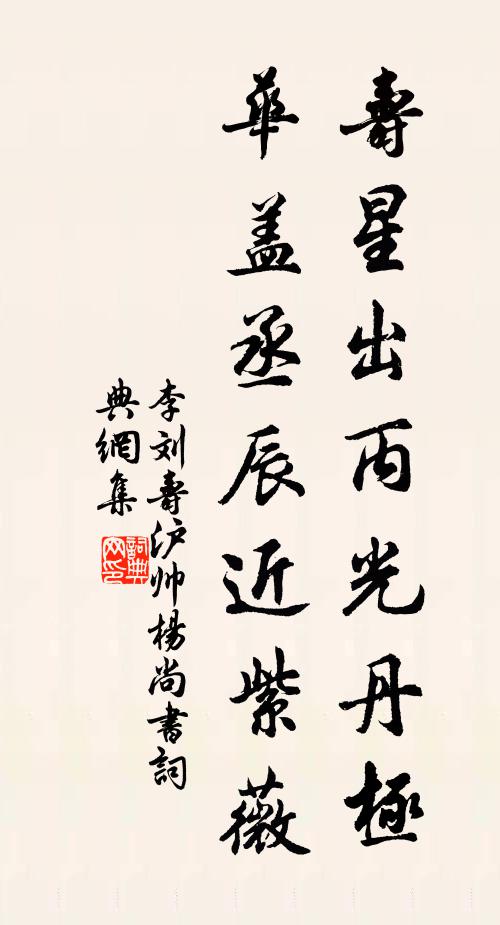 壽星出丙光丹極
華盖丞辰近紫薇
李刘壽沪帅楊尚書詞
典網集
詞典网印